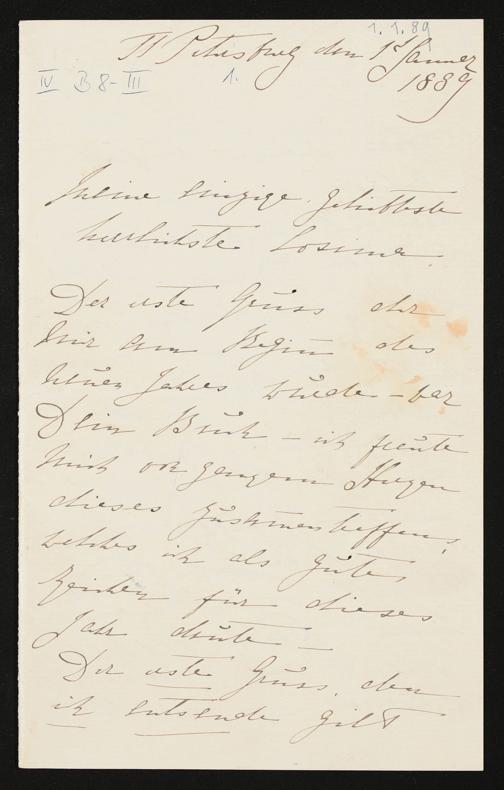 1. 1. 89
St Petersburg den 1ᵗ Janner
1889
IV B 8-III
1.
Meine einzige geliebteste
herrlichste Cosima.
Der erste Gruss der
mir am Beginn des
neuen Jahres würde - war
Dein Brief - ich freute
mich von ganzem Herzen
dieses Zusammentreffens,
welches ich als gutes
Zeichen für dieses
Jahr deute -
Der erste Gruss, den
ich entsende gilt